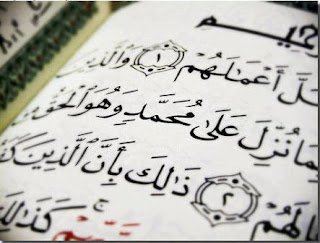 حِيمِ
ـلَّ أَعْمَٰلَهُمْ ١ وَٱلَّذِينَ
بِمَا نُزِّلَ عَلَىٰ مُحَمَّدٍ وَهُوَ ٱلْحَقُّ
ـالَهُمْ ٢ ذَٰلِكَ بِأَنَّ ٱلَّذِينَ كَفَـ
كَذَٰلِكَ